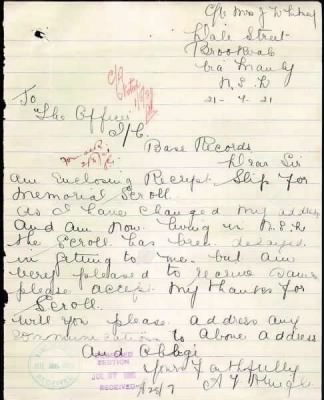 c/o Mrs J
Dale Street
Brookvale
Via Manly
N.S.W
21-4-21
To
The Officer
I/C
Base Records
Dear Sir
Am Enclosing Receipt Slip for
Memorial Scroll
As I have changed my address
And am now living in N.S.W
the Scroll has been delayed
in getting to me. but am
very pleased to receive same
please accept my thanks for
Scroll.
Will you please address any
communications to above address
And Oblige
Yours Faithfully
SECTION
RECEIVED